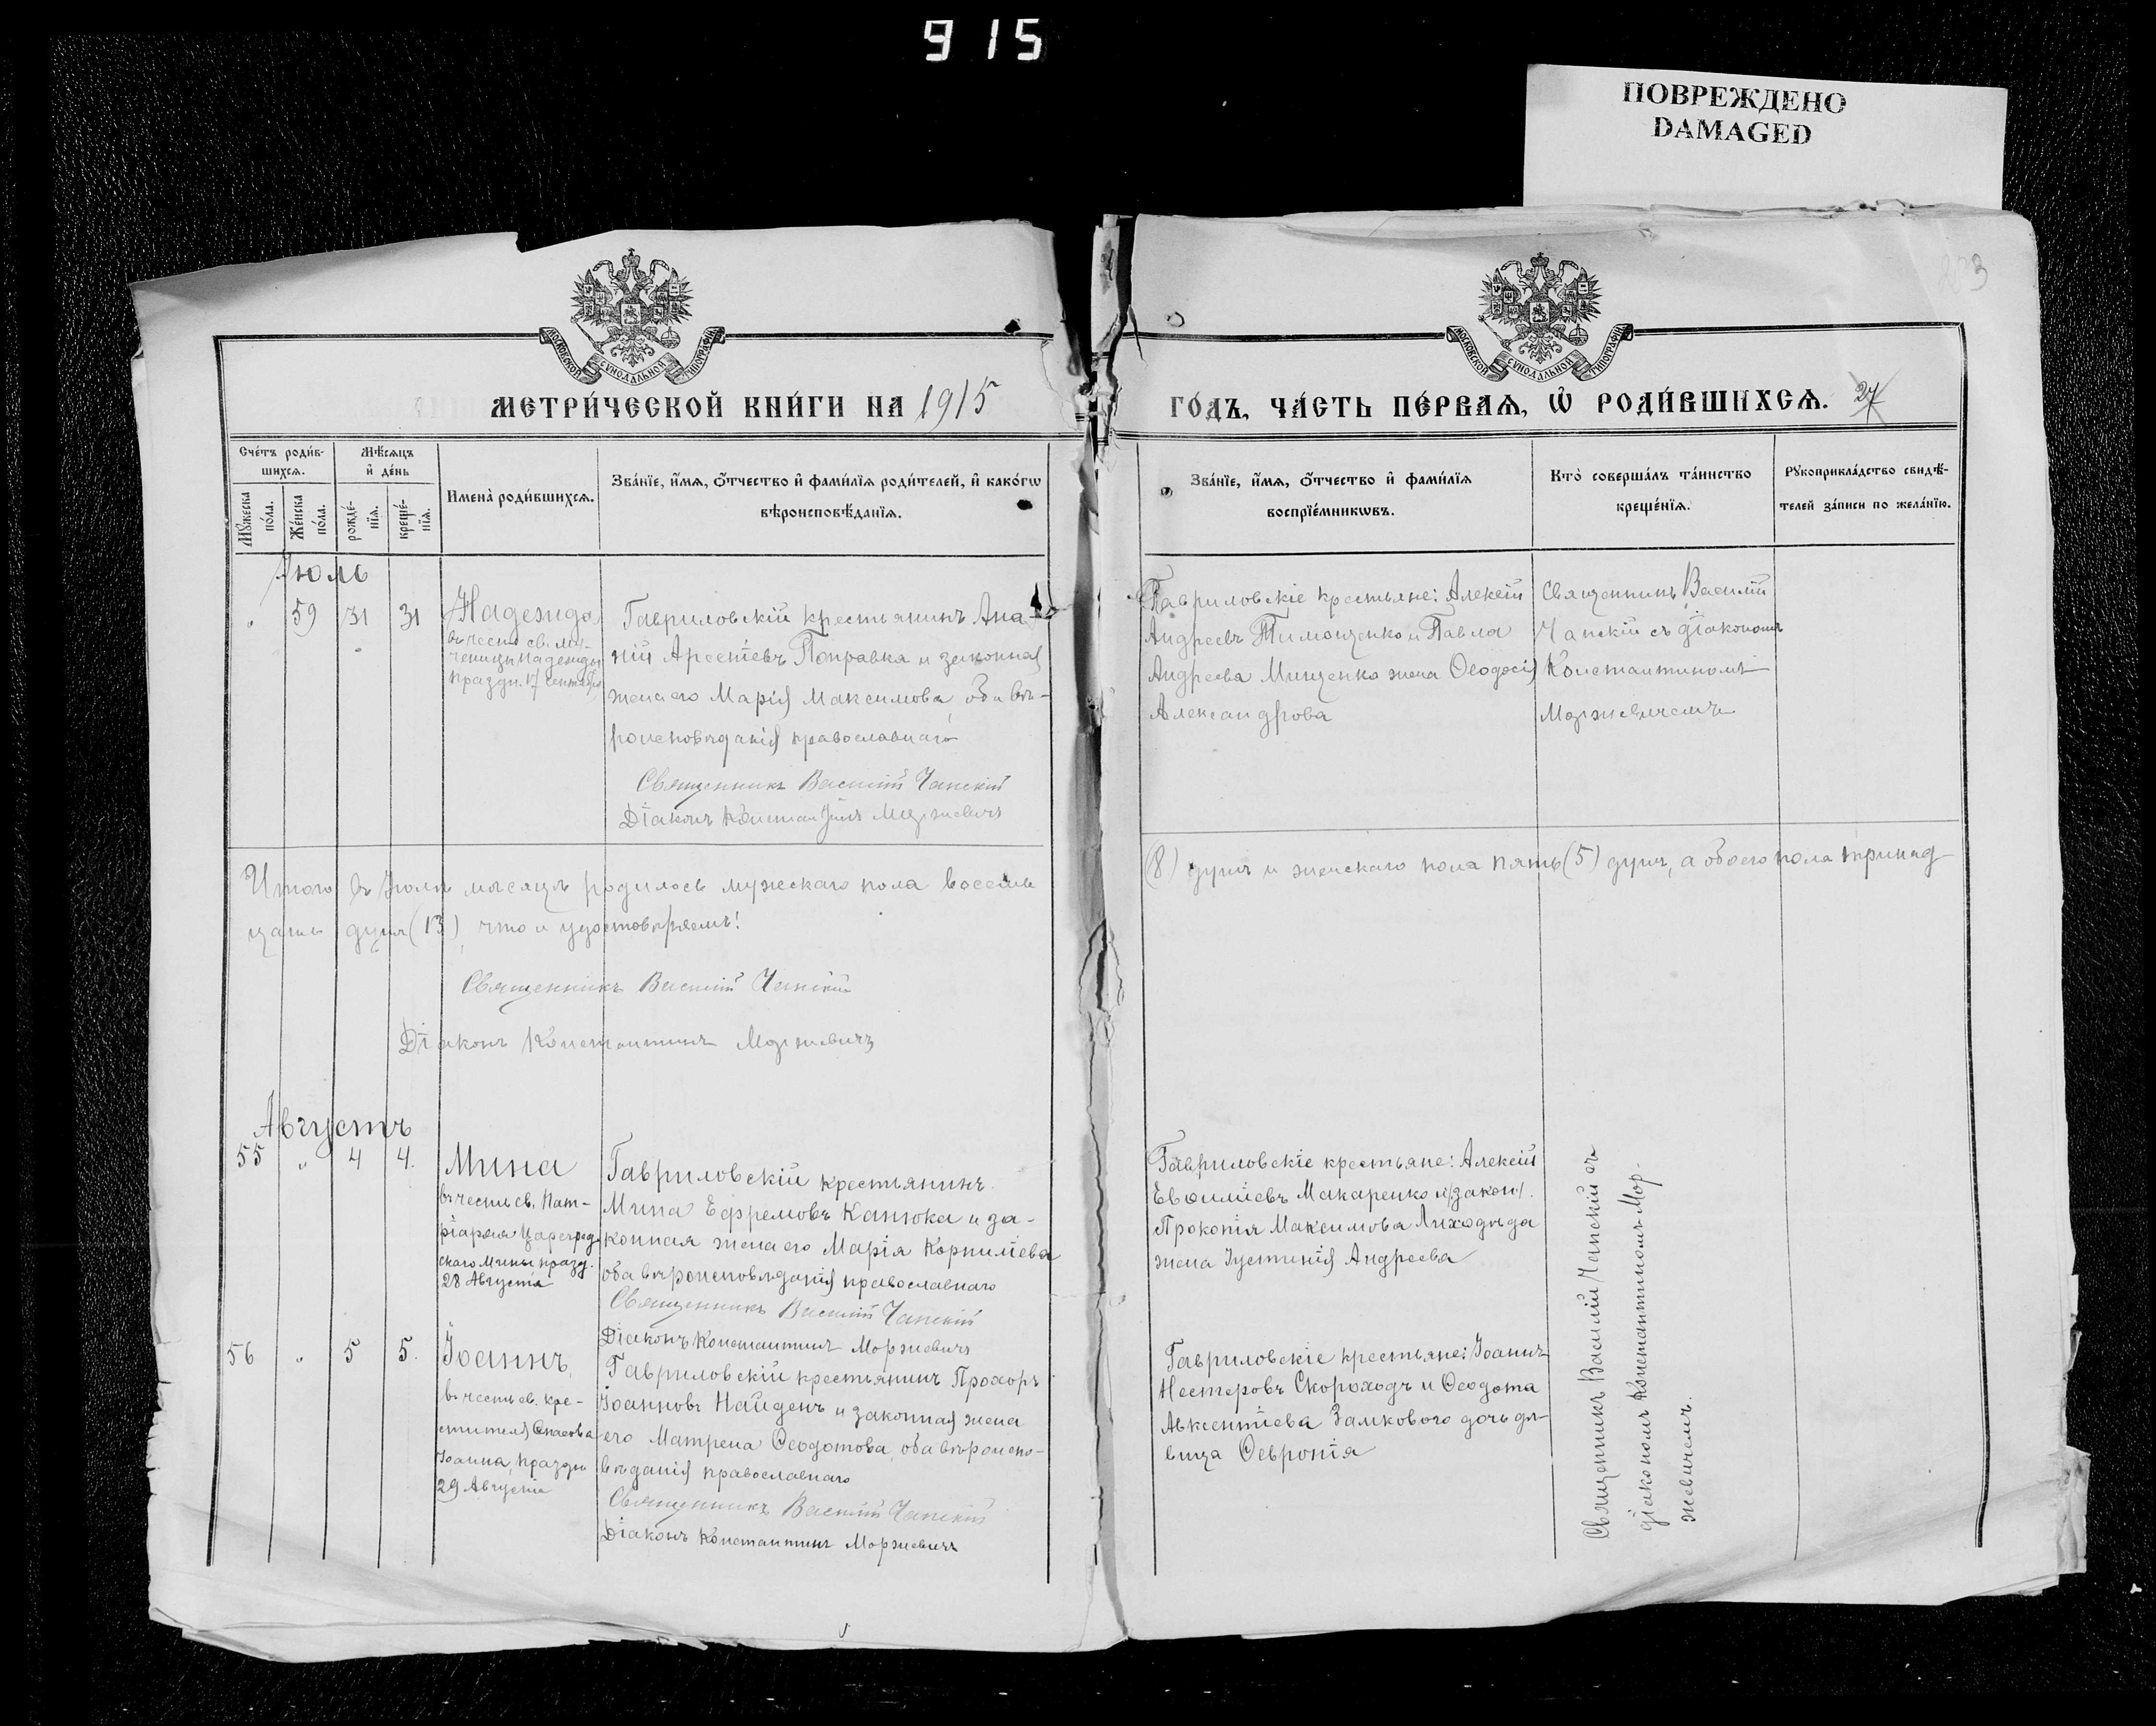 915
ПОВРЕЖДЕНО
DAMAGED
223
МОСКОВСКОЙ СѴНОДАЛЬНОЙ ТИПОГРАФІИ
МОСКОВСКОЙ СѴНОДАЛЬНОЙ ТИПОГРАФІИ
МЕТРИ́ЧЕСКОЙ КНИ́ГИ НА 1915
ГО́ДЪ, ЧА́СТЬ ПЕ́РВАѦ, Ѡ҆ РОДИ́ВШИХСѦ. 27
Сче́тъ роди́в-
шихсѧ.
Мѣ́сѧцъ
и҆ де́нь
Мꙋ́жеска
по́ла.
Же́нска
по́ла.
рожде́-
нїѧ.
креще́-
нїѧ.
Имена̀ роди́вшихсѧ.
Зва́нїе, и҆́мѧ, ѻ҆́тчество и҆ фами́лїѧ роди́телей, и҆ како́гѡ
вѣроисповѣ́данїѧ.
Зва́нїе, и҆́мѧ, ѻ҆́тчество и҆ фами́лїѧ
воспрїе́мникѡвъ.
Кто̀ соверша́лъ та́инство
креще́нїѧ.
Рꙋкоприкла́дство свидѣ́-
телей за́писи по жела́нїю.
Іюль
" 59 31 31
Надежда
въ честь св. му-
ченицы Надежды
праздн. 17 Сентября
Гавриловскій крестьянинъ Ана-
ній Арсеніевъ Поправка и законная
жена его Марія Максимова, оба вѣ-
роисповѣданія православнаго
Священникъ Василій Чапскій
Діаконъ Константинъ Моржевичъ
Гавриловскіе крестьяне: Алексій
Андреевъ Тимошенко и Павла
Андреева Мищенко жена Ѳеодосія
Александрова
Священникъ Василій
Чапскій съ діакономъ
Константиномъ
Моржевичемъ
Итого въ Іюлѣ мѣсяцѣ родилось мужескаго пола восемь
(8) душъ и женскаго пола пять (5) душъ, а обоего пола тринад-
цать душъ (13) что и удостовѣряемъ!
Священникъ Василій Чапскій
Діаконъ Константинъ Моржевичъ
Августъ
55 " 4 4.
Мина
въ честь св. Пат-
ріарха Цареград-
скаго Мины празд.
28 Августа
Гавриловскій крестьянинъ
Мина Ефремовъ Канюка и за-
конная жена его Марія Корниліева
оба вѣроисповѣданія православнаго
Священникъ Василій Чапскій
Діаконъ Константинъ Моржевичъ
Гавриловскіе крестьяне: Алексій
Евѳиміевъ Макаренко и /закон/.
Прокопія Максимова Лиходѣда
жена Іустинія Андреева
56 " 5 5.
Іоаннъ
въ честь св. Кре-
стителя Спасова
Іоанна, праздн.
29 Августа
Гавриловскій крестьянинъ Прохоръ
Іоанновъ Найденъ и законная жена
его Матрена Ѳеодотова, оба вѣроиспо-
вѣданія православнаго
Священникъ Василій Чапскій
Діаконъ Константинъ Моржевичъ
Гавриловскіе крестьяне: Іоаннъ
Нестеровъ Скороходъ и Ѳеодота
Авксентіева Замкового дочь дѣ-
вица Ѳевронія
Священникъ Василій Чапскій съ
діакономъ Константиномъ Мор-
жевичемъ.